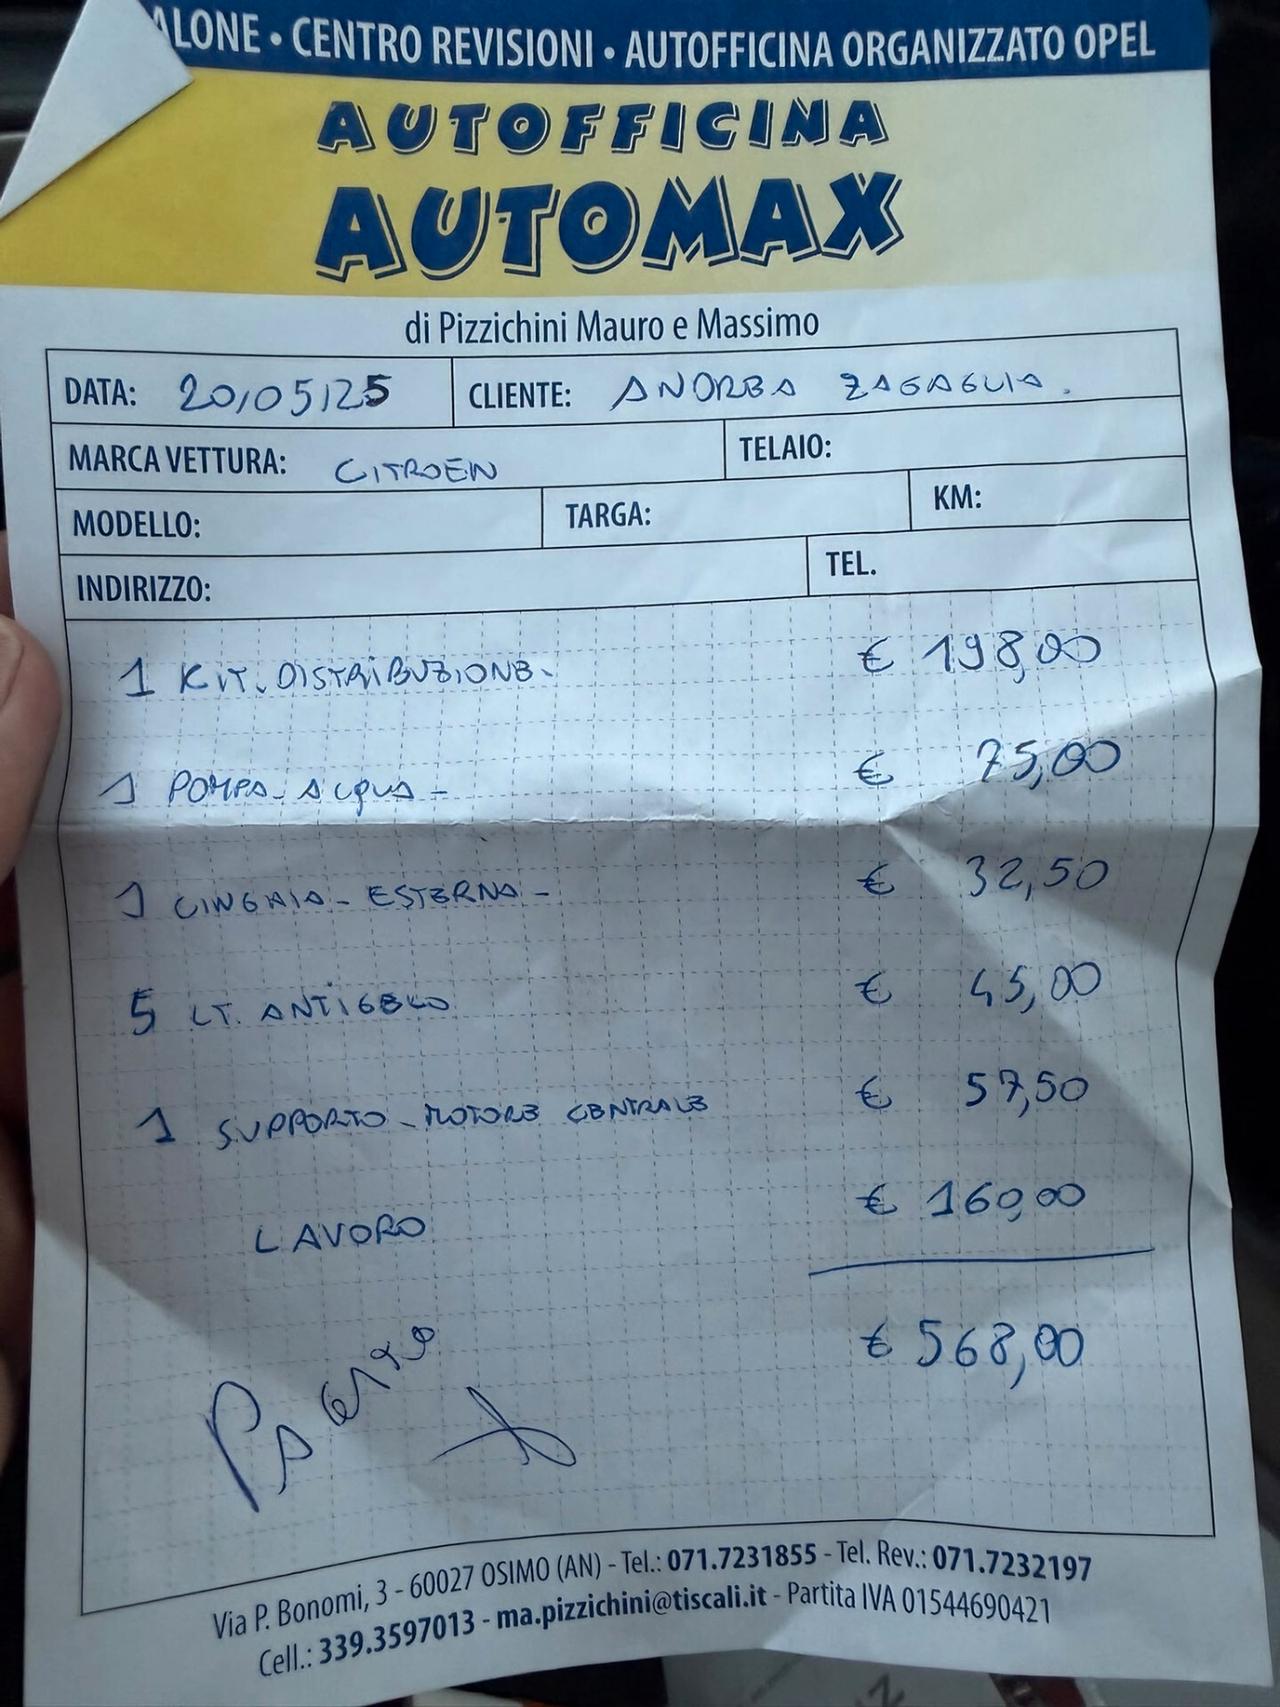 ALONE • CENTRO REVISIONI • AUTOFFICINA ORGANIZZATO OPEL
AUTOFFICINA
AUTOMAX
di Pizzichini Mauro e Massimo
DATA: 20/05/25 CLIENTE: ANDREA ZAGAGLIA.
MARCA VETTURA: CITROEN TELAIO:
MODELLO: TARGA: KM:
INDIRIZZO: TEL.
1 KIT. DISTRIBUZIONE- € 198,00
1 POMPA-ACQUA- € 75,00
1 CINGHIA-ESTERNA- € 32,50
5 LT. ANTIGELO € 45,00
1 SUPPORTO-MOTORE CENTRALE € 57,50
LAVORO € 160,00
€ 568,00
Via P. Bonomi, 3 - 60027 OSIMO (AN) - Tel.: 071.7231855 - Tel. Rev.: 071.7232197
Cell.: 339.3597013 - ma.pizzichini@tiscali.it - Partita IVA 01544690421